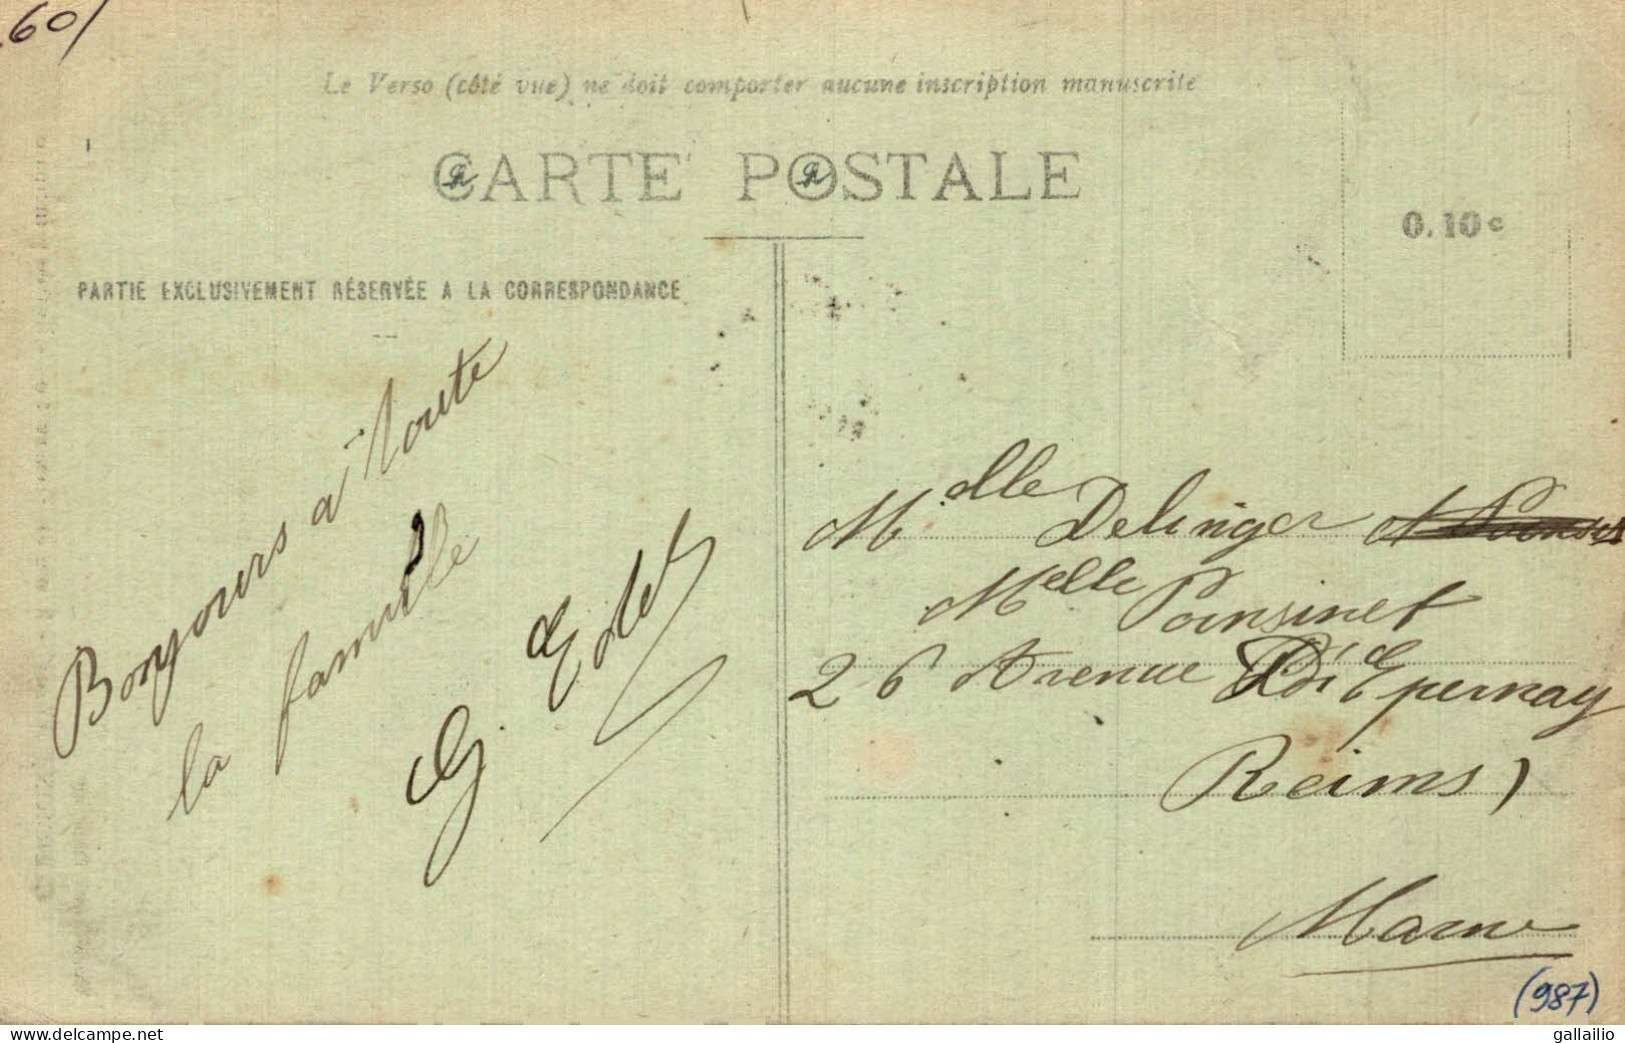 60/
Le Verso (côté vue) ne doit comporter aucune inscription manuscrite
CARTE POSTALE
0.10 c
PARTIE EXCLUSIVEMENT RÉSERVÉE A LA CORRESPONDANCE
Bonjours à toute
la famille
G.
Melle Delinger
Melle Poinsinet
26 Avenue D'Epernay
Reims)
Marne
(987)
gallailio
delcampe.net